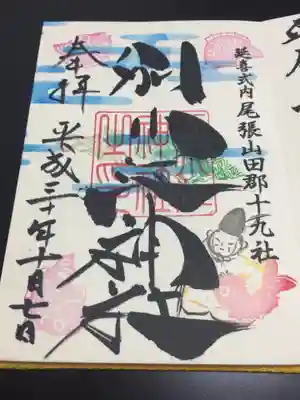 延喜式内 尾張山田郡十九社
別小江神社
奉拝 平成三十年十月七日